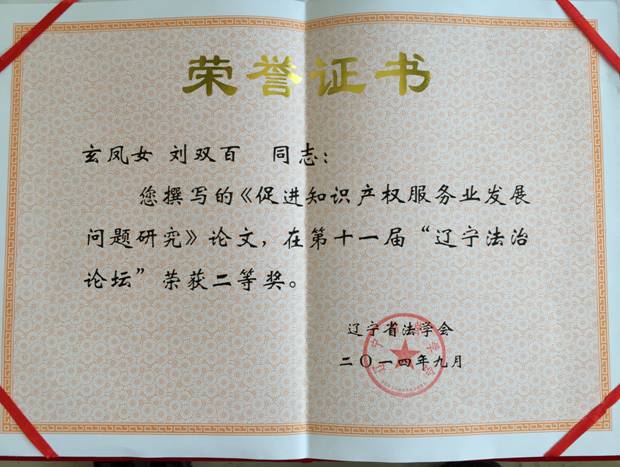 荣誉证书
玄凤女 刘双百 同志：
您撰写的《促进知识产权服务业发展
问题研究》论文，在第十一届“辽宁法治
论坛”荣获二等奖。
辽宁省法学会
二〇一四年九月